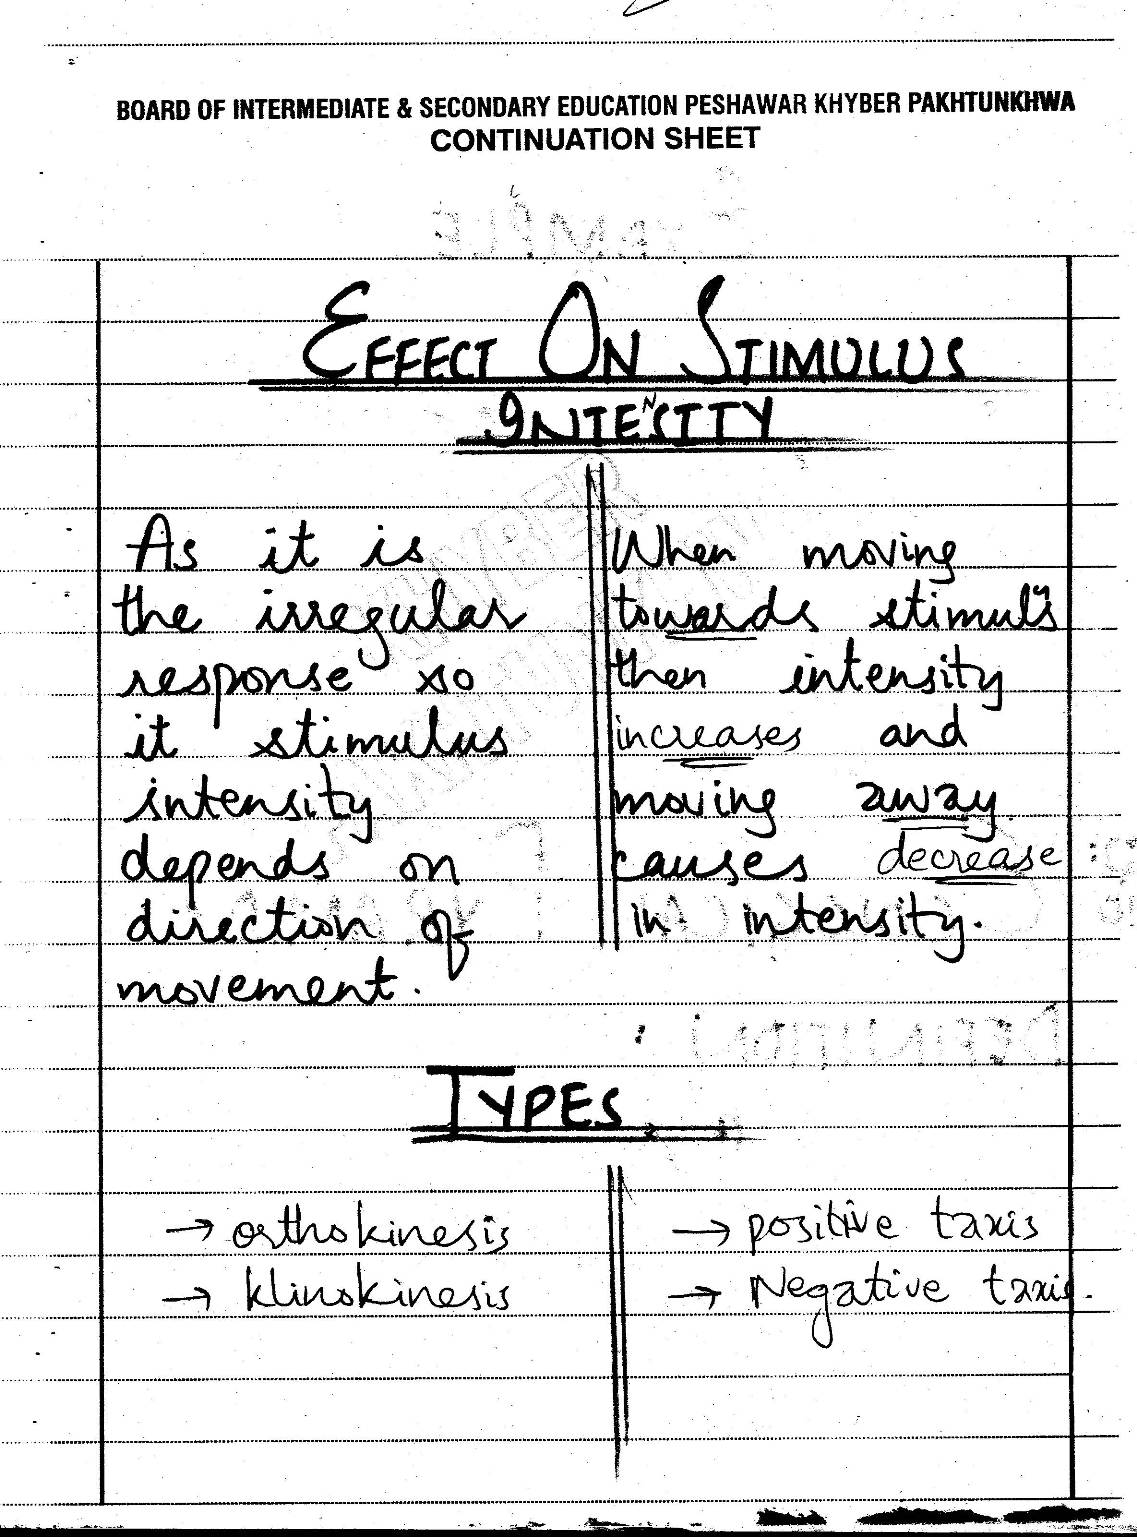 BOARD OF INTERMEDIATE & SECONDARY EDUCATION PESHAWAR KHYBER PAKHTUNKHWA
CONTINUATION SHEET
EFFECT ON STIMULUS
INTENSITY
As it is
the irregular
response so
it stimulus
intensity
depends on
direction of
movement.
When moving
towards stimulus
then intensity
increases and
moving away
causes decrease
in intensity.
TYPES
→ orthokinesis
→ klinokinesis
→ positive taxis
→ Negative taxis.